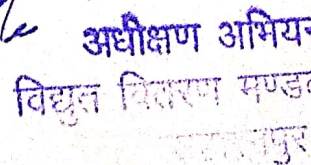 अधीक्षण अभियन
विद्युत वितरण मण्डल